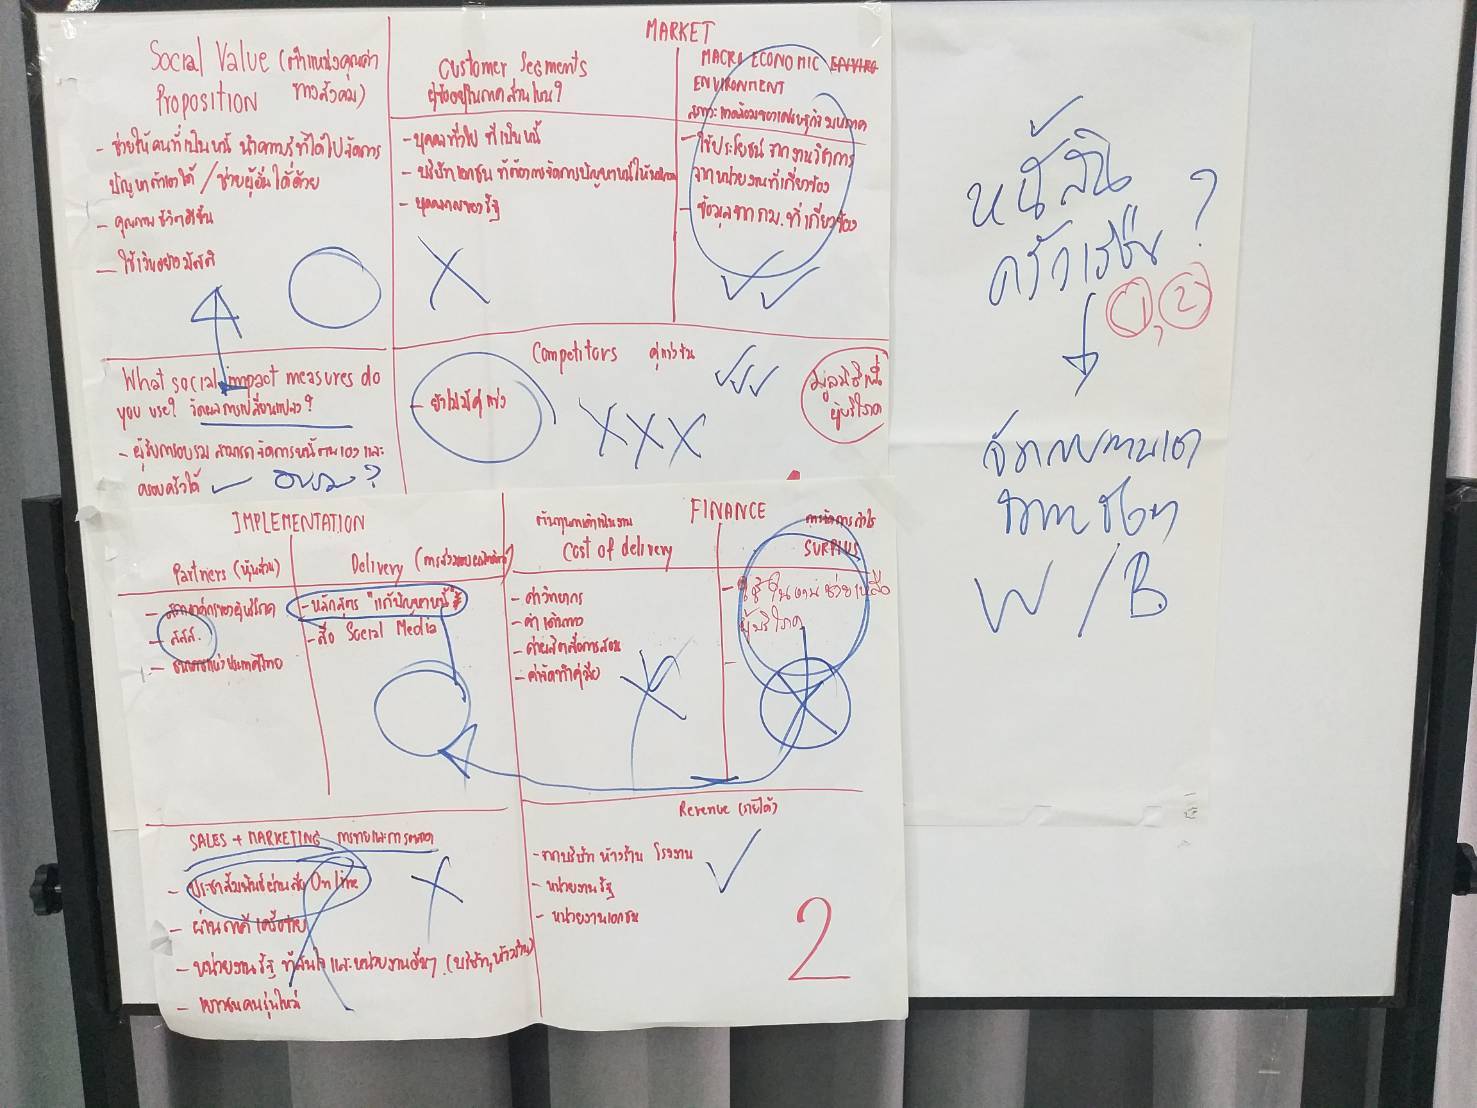 Social Value (ตำแหน่งคุณค่า
Proposition ทางสังคม)
- ช่วยให้คนที่เป็นหนี้ นำความรู้ที่ได้ไปจัดการ
ปัญหาตัวเองได้ / ช่วยผู้อื่นได้ด้วย
- คุณภาพชีวิตดีขึ้น
- ใช้เงินอย่างมีสติ
MARKET
Customer Segments
- บุคคลทั่วไป ที่เป็นหนี้
- บริษัทเอกชน ที่ต้องการจัดการปัญหาหนี้ให้
- บุคลากรของรัฐ
MACRO ECONOMIC ENVIRO
ENVIRONMENT
สภาวะแวดล้อมของเศรษฐกิจมหภาค
- ใช้ประโยชน์ จากงานวิชาการ
จากหน่วยงานที่เกี่ยวข้อง
- ข้อมูลจาก กม. ที่เกี่ยวข้อง
What social impact measures do
you use? วัดผลการเปลี่ยนแปลง?
- ผู้รับการอบรม สามารถจัดการหนี้ตนเองและ
ครอบครัวได้ อบรม?
Competitors คู่แข่งขัน
- ยังไม่มีคู่แข่ง
มูลนิธิเพื่อ
ผู้บริโภค
IMPLEMENTATION
Partners (หุ้นส่วน)
- สภาองค์กรของผู้บริโภค
- สสส.
- ธนาคารแห่งประเทศไทย
Delivery
- หลักสูตร "แก้ปัญหาหนี้"
- สื่อ Social Media
FINANCE
ต้นทุนการดำเนินงาน
Cost of delivery
- ค่าวิทยากร
- ค่าเดินทาง
- ค่าผลิตสื่อการสอน
- ค่าจัดทำคู่มือ
การจัดการกำไร
SURPLUS
- ใช้ในงานช่วยเหลือ
ผู้บริโภค
-
SALES + MARKETING การขายและการตลาด
- ประชาสัมพันธ์ผ่านสื่อ Online
- ผ่านภาคีเครือข่าย
- หน่วยงานรัฐ ที่สนใจ และหน่วยงานอื่นๆ (บริษัท, ห้างร้าน)
- เยาวชนคนรุ่นใหม่
Revenue (รายได้)
- จากบริษัท ห้างร้าน โรงงาน
- หน่วยงานรัฐ
- หน่วยงานเอกชน
2
หนี้สิน
ครัวเรือน ?
1, 2
W/B